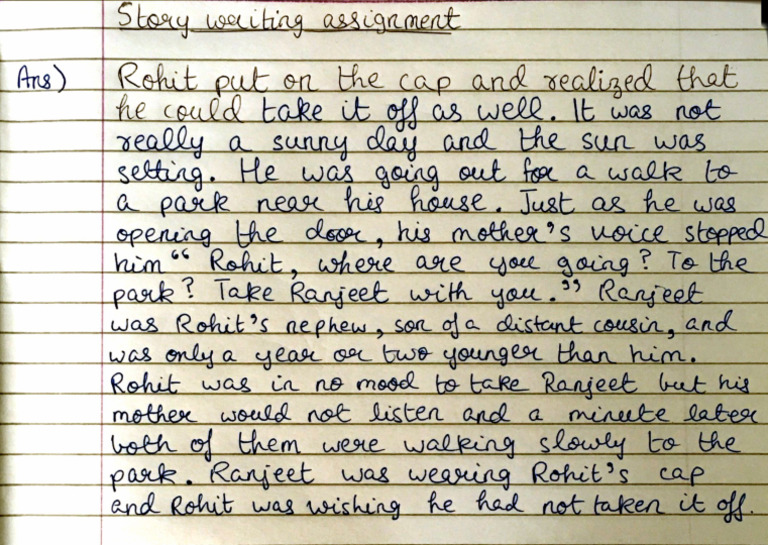 Story writing assignment
Ans) Rohit put on the cap and realized that
he could take it off as well. It was not
really a sunny day and the sun was
setting. He was going out for a walk to
a park near his house. Just as he was
opening the door, his mother's voice stopped
him “ Rohit, where are you going? To the
park? Take Ranjeet with you.” Ranjeet
was Rohit's nephew, son of a distant cousin, and
was only a year or two younger than him.
Rohit was in no mood to take Ranjeet but his
mother would not listen and a minute later
both of them were walking slowly to the
park. Ranjeet was wearing Rohit's cap
and Rohit was wishing he had not taken it off.